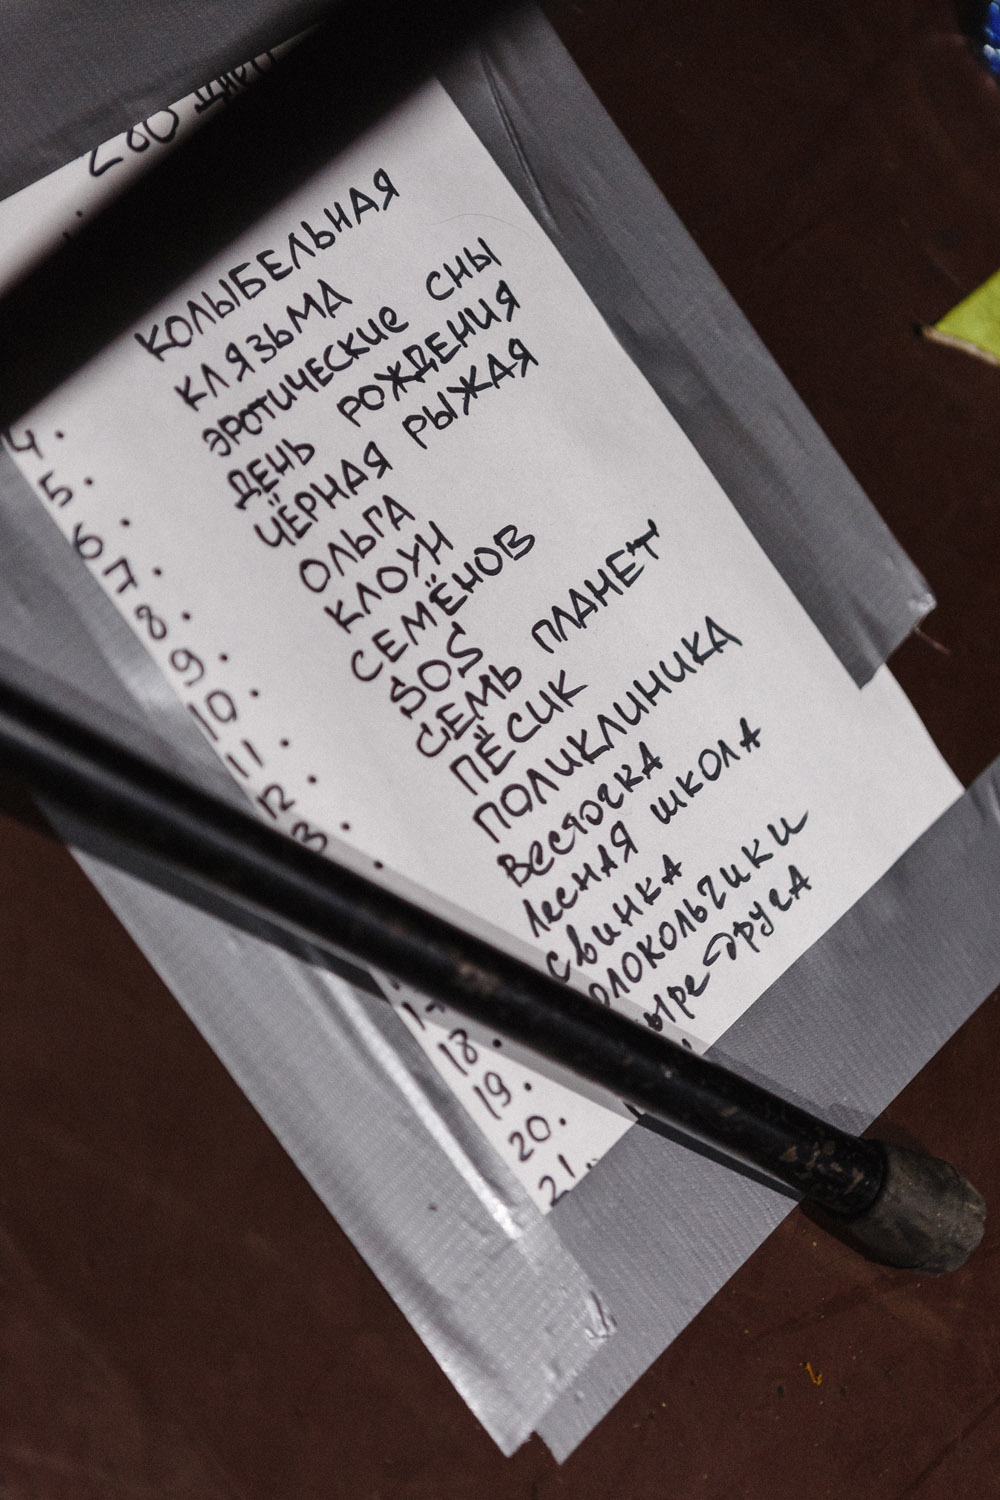 280
4. КОЛЫБЕЛЬНАЯ
5. КЛЯЗЬМА
6. ЭРОТИЧЕСКИЕ СНЫ
7. ДЕНЬ РОЖДЕНИЯ
8. ЧЁРНАЯ РЫЖАЯ
9. ОЛЬГА
10. КЛОУН
11. СЕМЁНОВ
12. SOS
3. СЕМЬ ПЛАНЕТ
ПЁСИК
ПОЛИКЛИНИКА
Весточка
Лесная школа
18. Свинка
19. олокольчики
20. ыре друга
21.